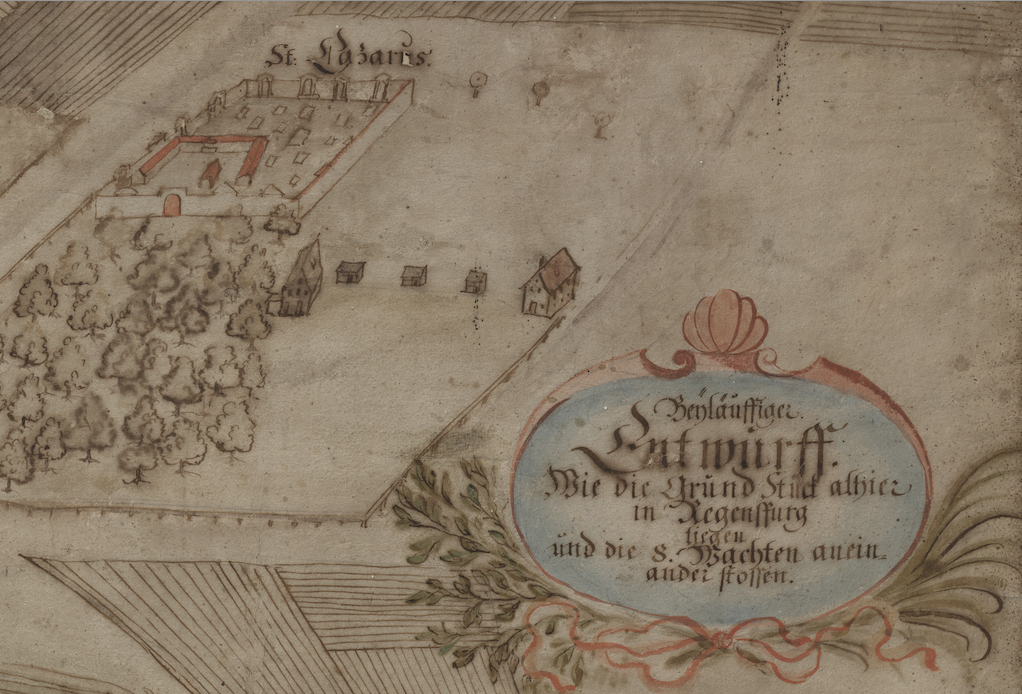 St: Lazarus.
Beyläuffiger
Entwurff.
Wie die Grund Stuck alhier
in Regenspurg
liegen
und die 8. Wachten anein=
ander stossen.